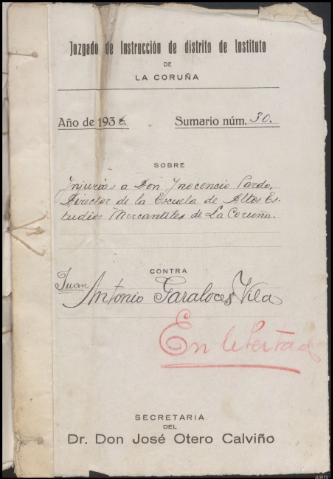 Juzgado de Instrucción de distrito de Instituto
DE
LA CORUÑA
Año de 1936 Sumario núm. 30.
SOBRE
Injurias a Don Inocencio Pardo,
Director de la Escuela de Altos Es-
tudios Mercantiles de La Coruña.
CONTRA
Juan Antonio Vila
En libertad
SECRETARIA
DEL
Dr. Don José Otero Calviño